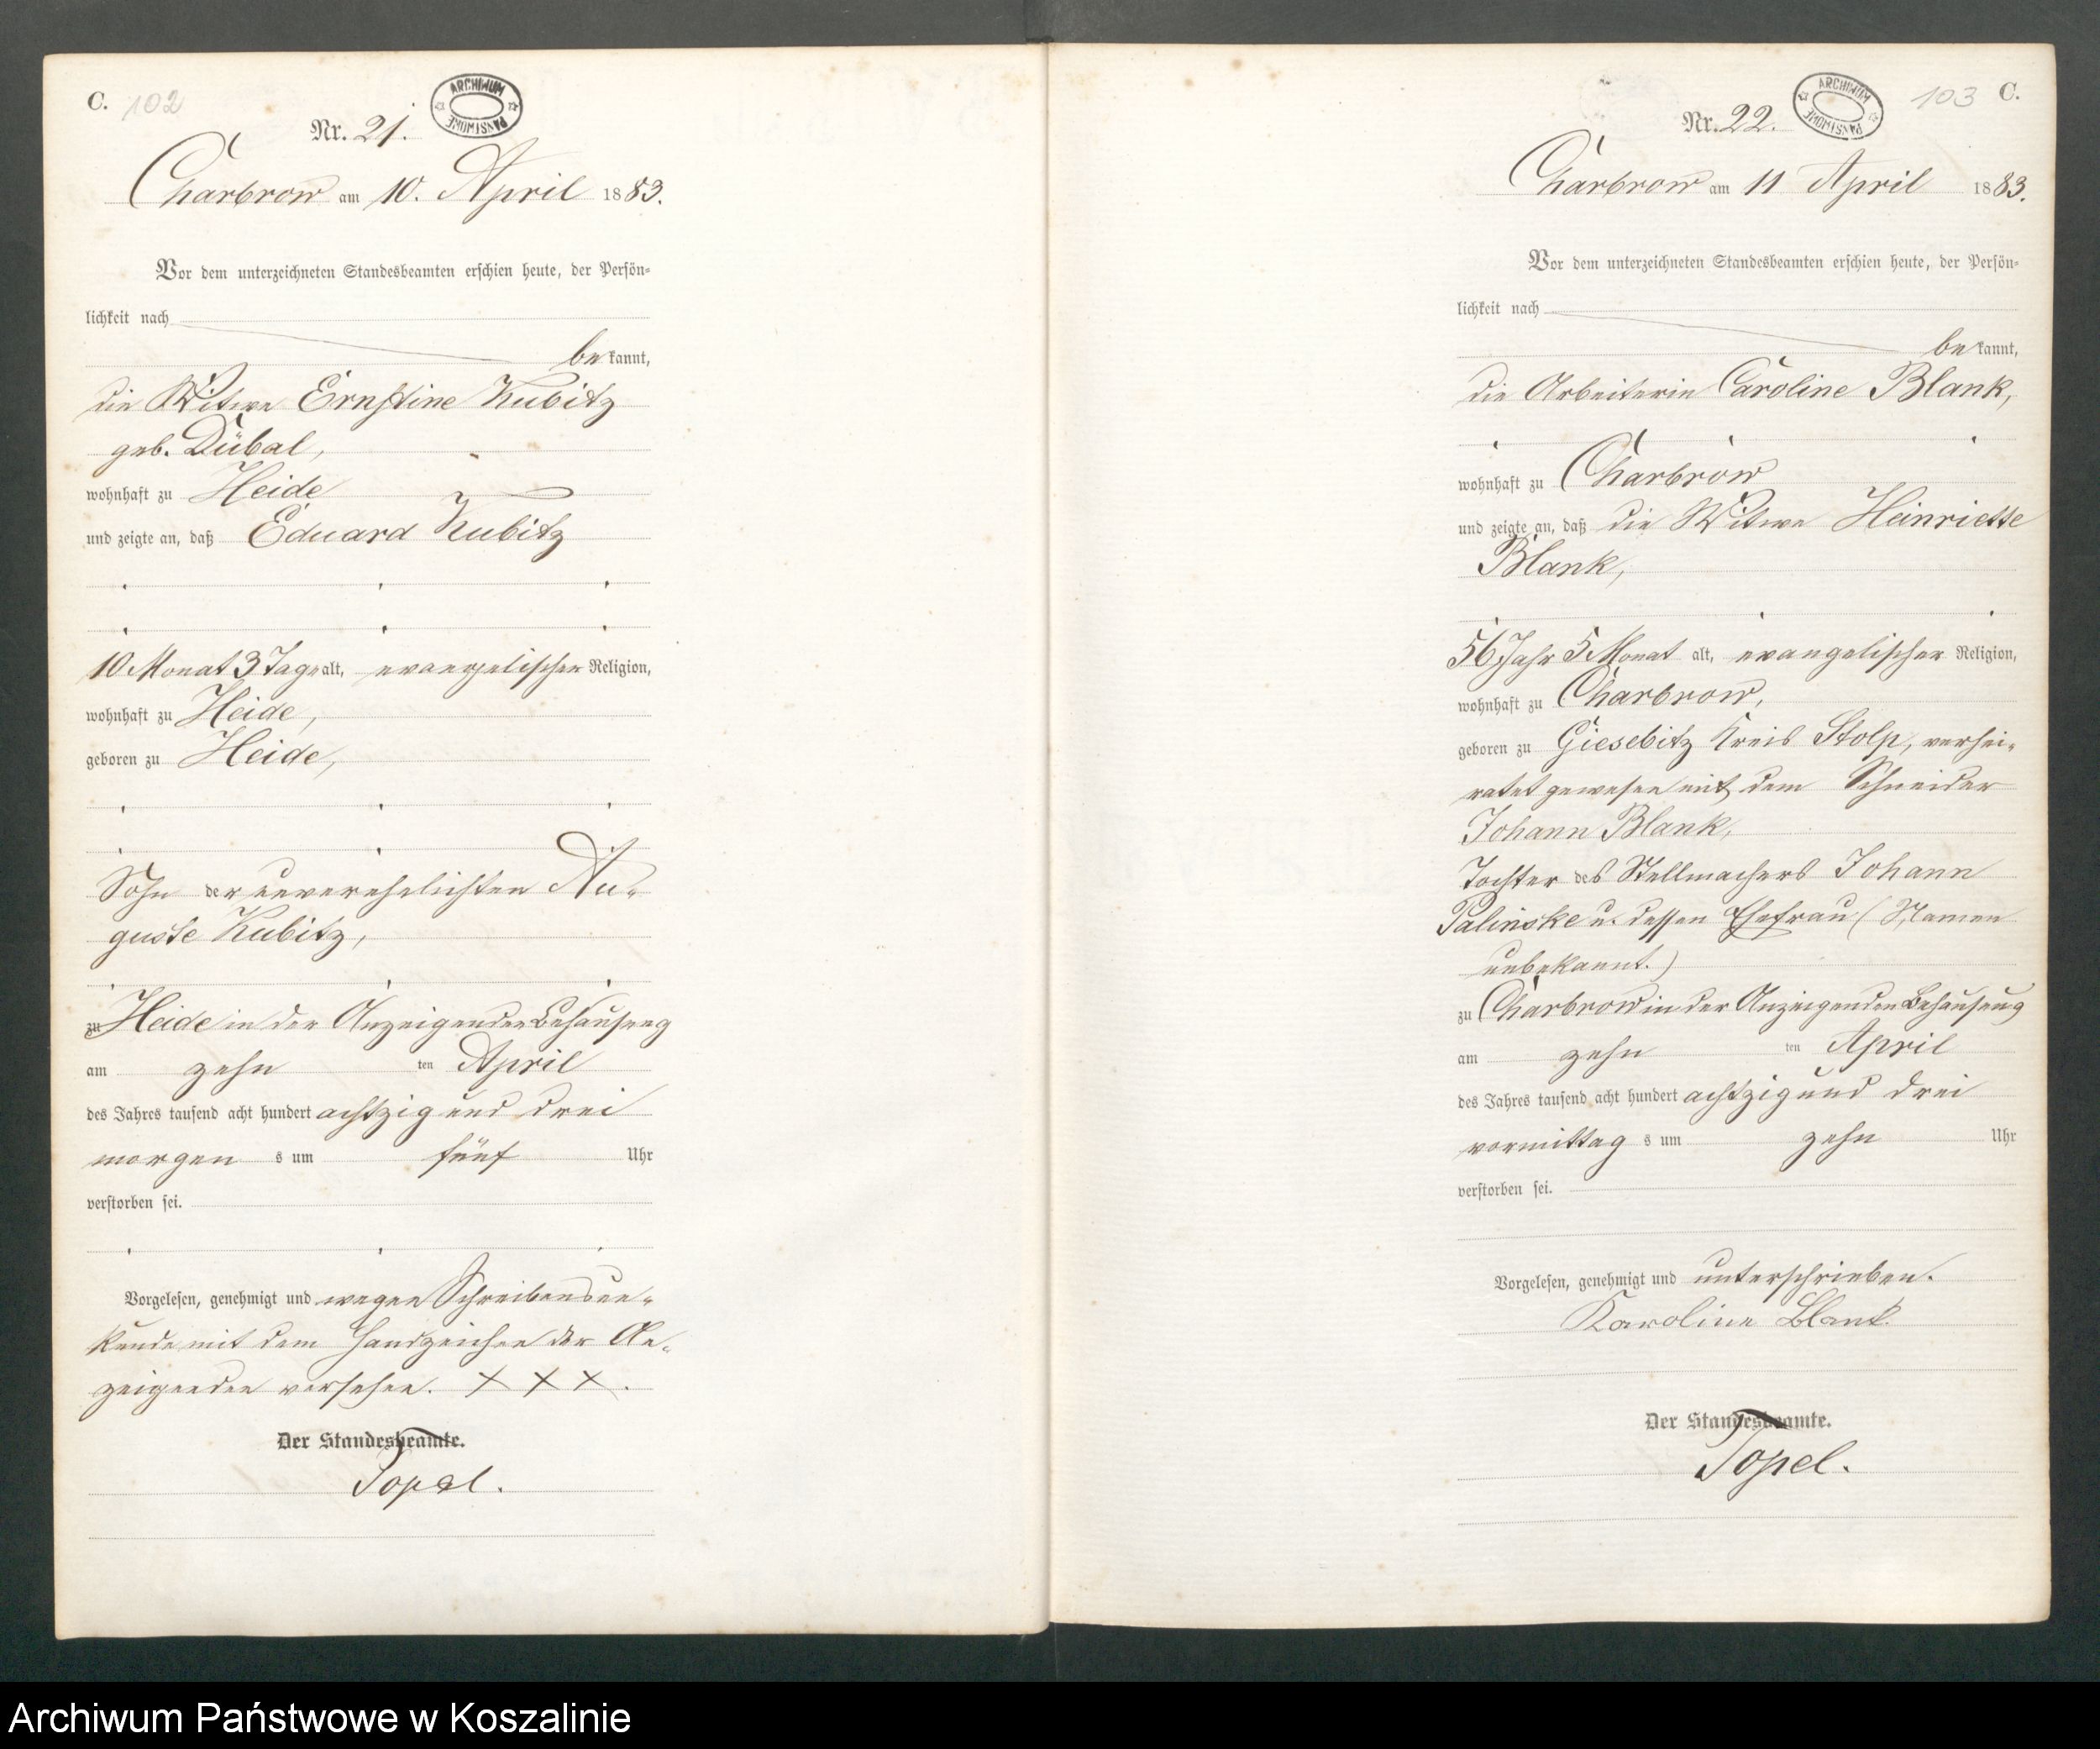 C. 102
ARCHIWUM PAŃSTWOWE
Nr. 21.
Charbrow am 10. April 1883.
Vor dem unterzeichneten Standesbeamten erschien heute, der Persön-
lichkeit nach
bekannt,
die Witwe Ernstine Kubitz
geb. Dübal,
wohnhaft zu Heide
und zeigte an, daß Eduard Kubitz
10 Monat 3 Tage alt, evangelischer Religion,
wohnhaft zu Heide,
geboren zu Heide,
Sohn der unverehelichten Au-
guste Kubitz,
zu Heide in der Anzeigenden Behausung
am zehn ten April
des Jahres tausend acht hundert achtzig und drei
morgen s um fünf Uhr
verstorben sei.
Vorgelesen, genehmigt und wegen Schreibensun-
kunde mit dem Handzeichen der An-
zeigenden versehen. X X X.
Der Standesbeamte.
Topel.
103 C.
ARCHIWUM PAŃSTWOWE
Nr. 22.
Charbrow am 11 April 1883.
Vor dem unterzeichneten Standesbeamten erschien heute, der Persön-
lichkeit nach
bekannt,
die Arbeiterin Caroline Blank,
wohnhaft zu Charbrow
und zeigte an, daß die Witwe Heinriette
Blank,
56 Jahr 5 Monat alt, evangelischer Religion,
wohnhaft zu Charbrow,
geboren zu Giesebitz Kreis Stolp, verhei-
ratet gewesen mit dem Schneider
Johann Blank,
Tochter des Stellmachers Johann
Palinske u. dessen Ehefrau (Namen
unbekannt.)
zu Charbrow in der Anzeigenden Behausung
am zehn ten April
des Jahres tausend acht hundert achtzig und drei
vormittag s um zehn Uhr
verstorben sei.
Vorgelesen, genehmigt und unterschrieben.
Karoline Blank.
Der Standesbeamte.
Topel.
Archiwum Państwowe w Koszalinie